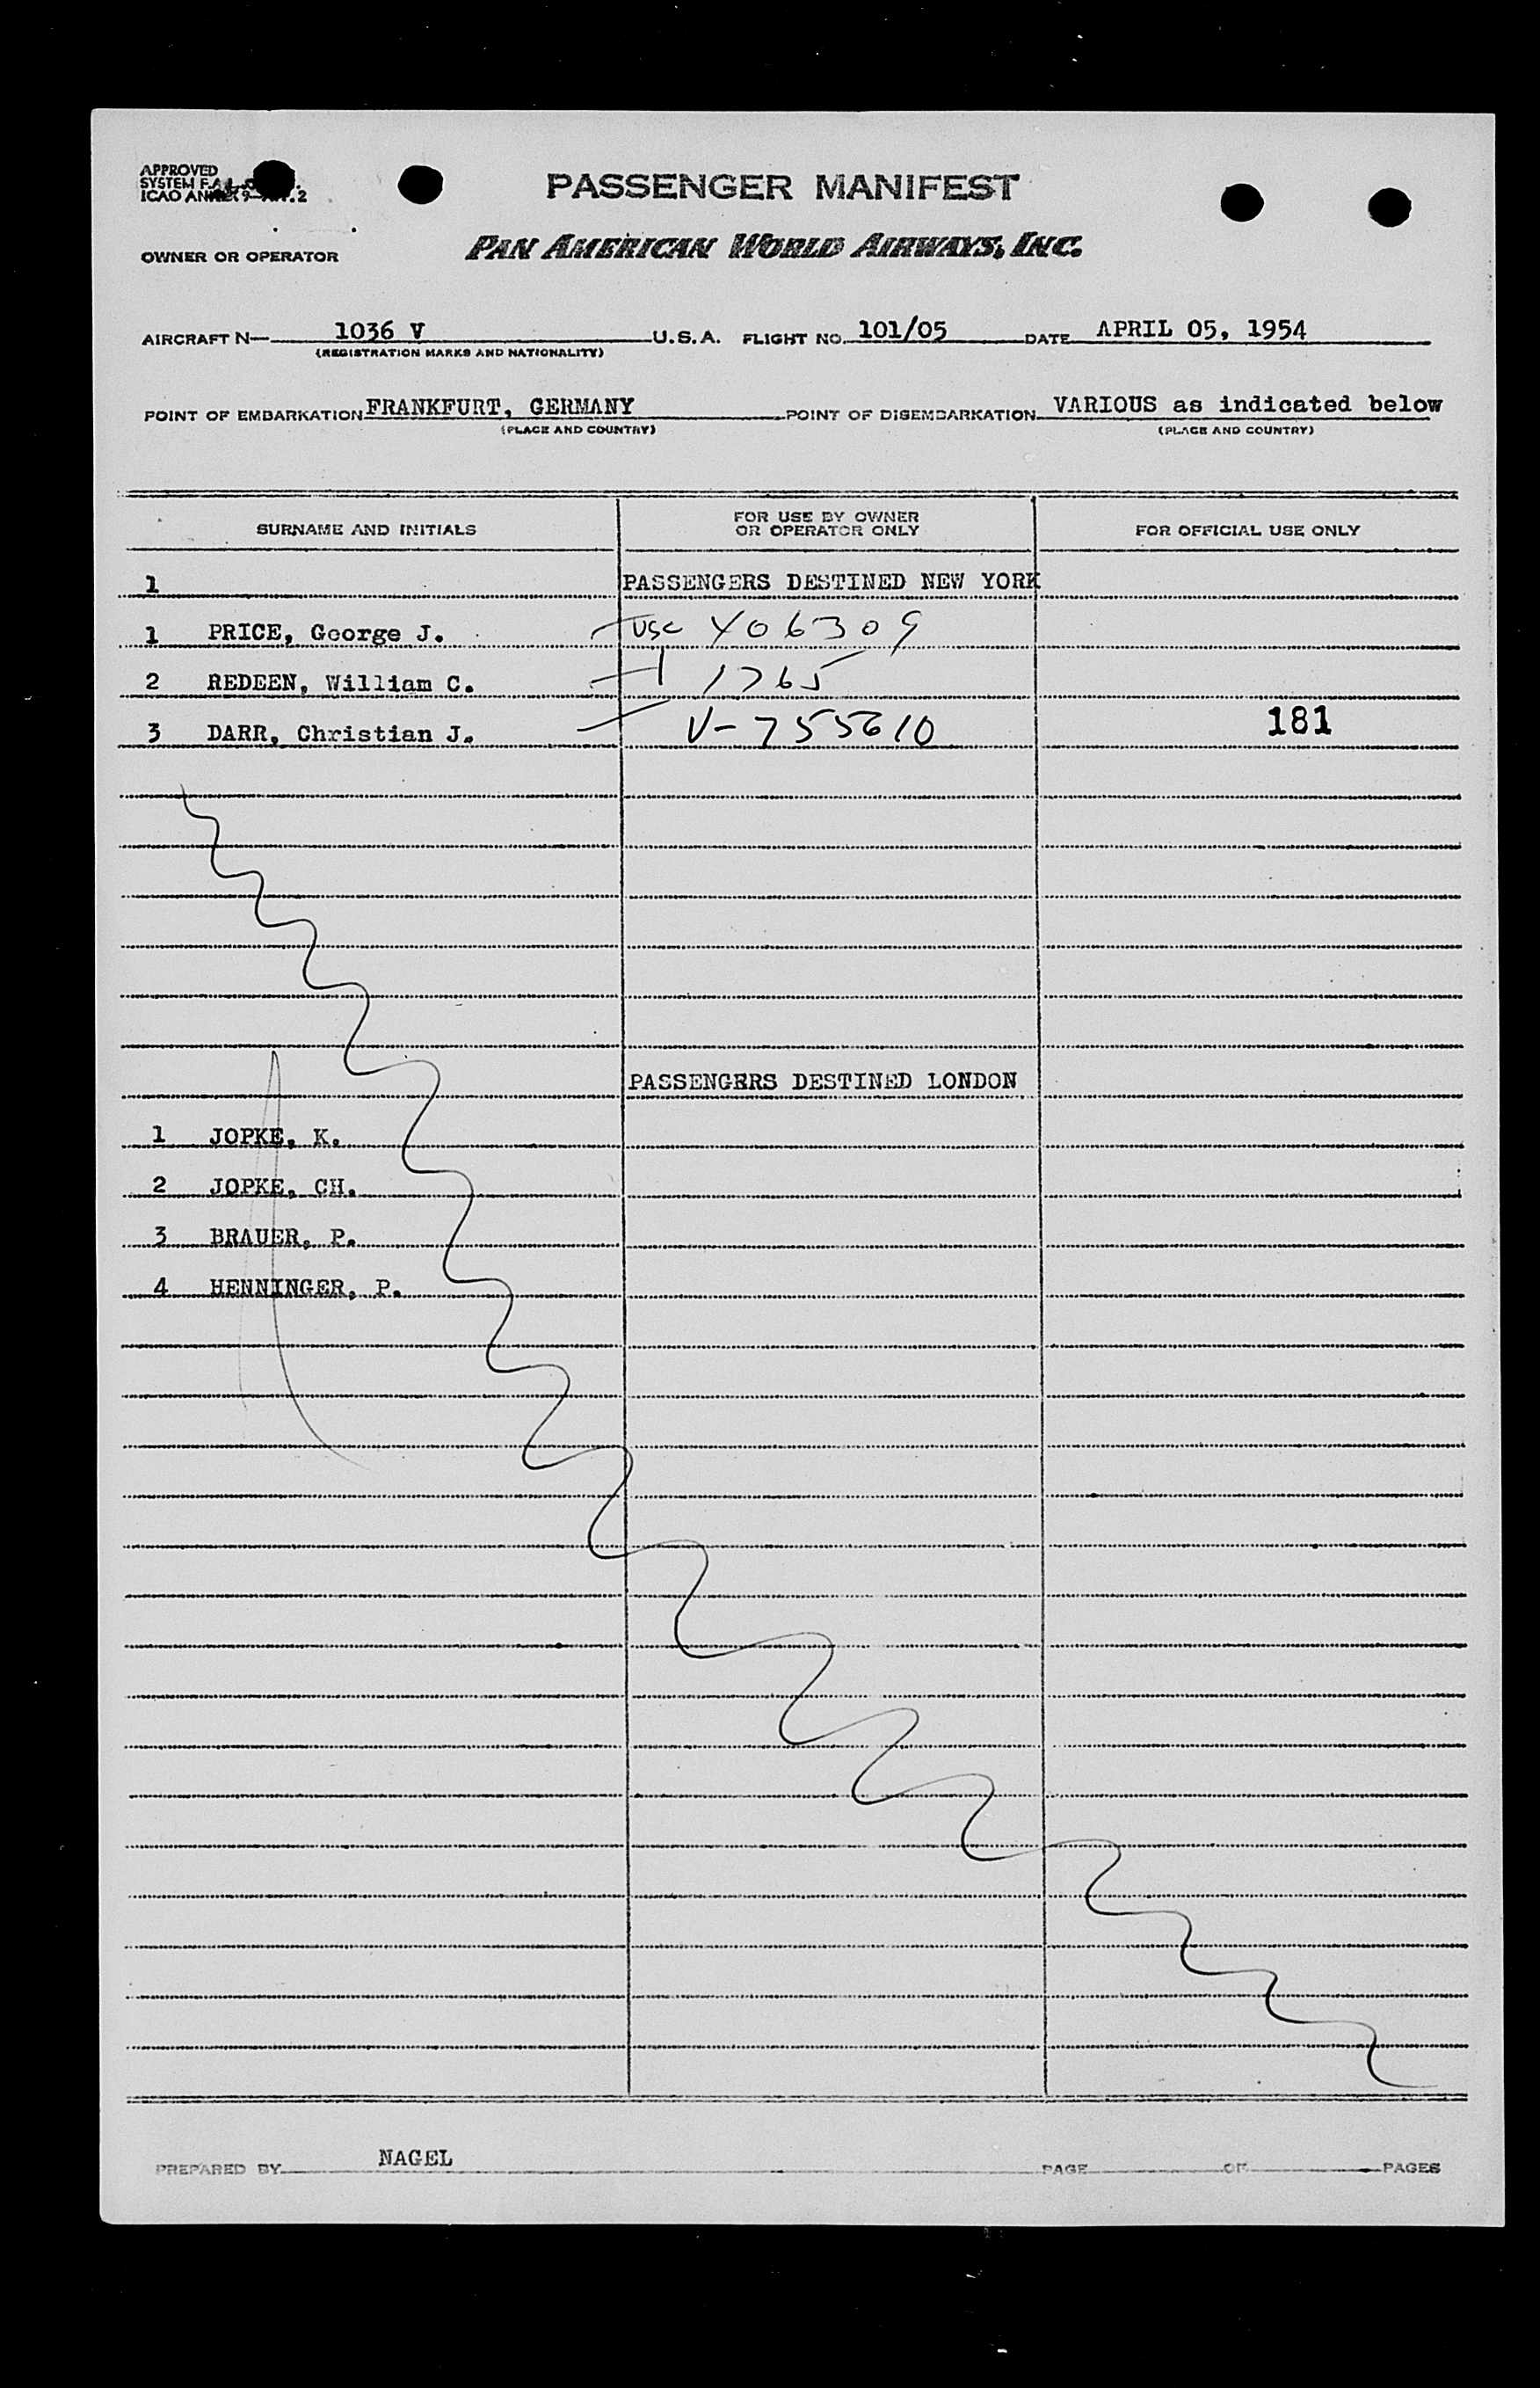 APPROVED
SYSTEM
ICAO
PASSENGER MANIFEST
OWNER OR OPERATOR
PAN AMERICAN WORLD AIRWAYS, INC.
AIRCRAFT N— 1036 V U.S.A. FLIGHT NO. 101/05 DATE APRIL 05, 1954
(REGISTRATION MARKS AND NATIONALITY)
POINT OF EMBARKATION FRANKFURT, GERMANY POINT OF DISEMBARKATION VARIOUS as indicated below
(PLACE AND COUNTRY) (PLACE AND COUNTRY)
SURNAME AND INITIALS FOR USE BY OWNER OR OPERATOR ONLY FOR OFFICIAL USE ONLY
1 PASSENGERS DESTINED NEW YORK
1 PRICE, George J. USC 406309
2 REDEEN, William C. 1765
3 DARR, Christian J. V-755610 181
PASSENGERS DESTINED LONDON
1 JOPKE, K.
2 JOPKE, CH.
3 BRAUER, P.
4 HENNINGER, P.
PREPARED BY NAGEL PAGE OF PAGES